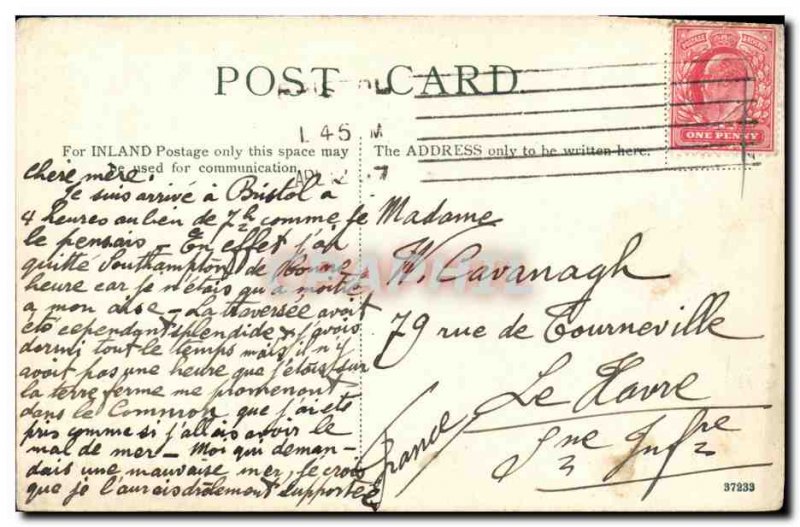 POST CARD
For INLAND Postage only this space may
be used for communication.
The ADDRESS only to be written here.
1.45 M
ONE PENNY
chère mère.
Je suis arrivé à Bristol à
4 heures au lieu de 7h comme je
le pensais - En effet j'ai
quitté Southampton de bonne
heure car je n'étais qu'à moitié
a mon aise - La traversée avait
été cependant splendide & j'avais
dormi tout le temps mais il n'y
avait pas une heure que j'étais sur
la terre ferme me promenant
dans le Common que j'ai été
pris comme si j'allais avoir le
mal de mer - Moi qui deman-
dais une mauvaise mer, je crois
que je l'aurais drôlement supportée
Madame
H. Cavanagh
79 rue de Tourneville
Le Havre
Sne Infre
France
37233